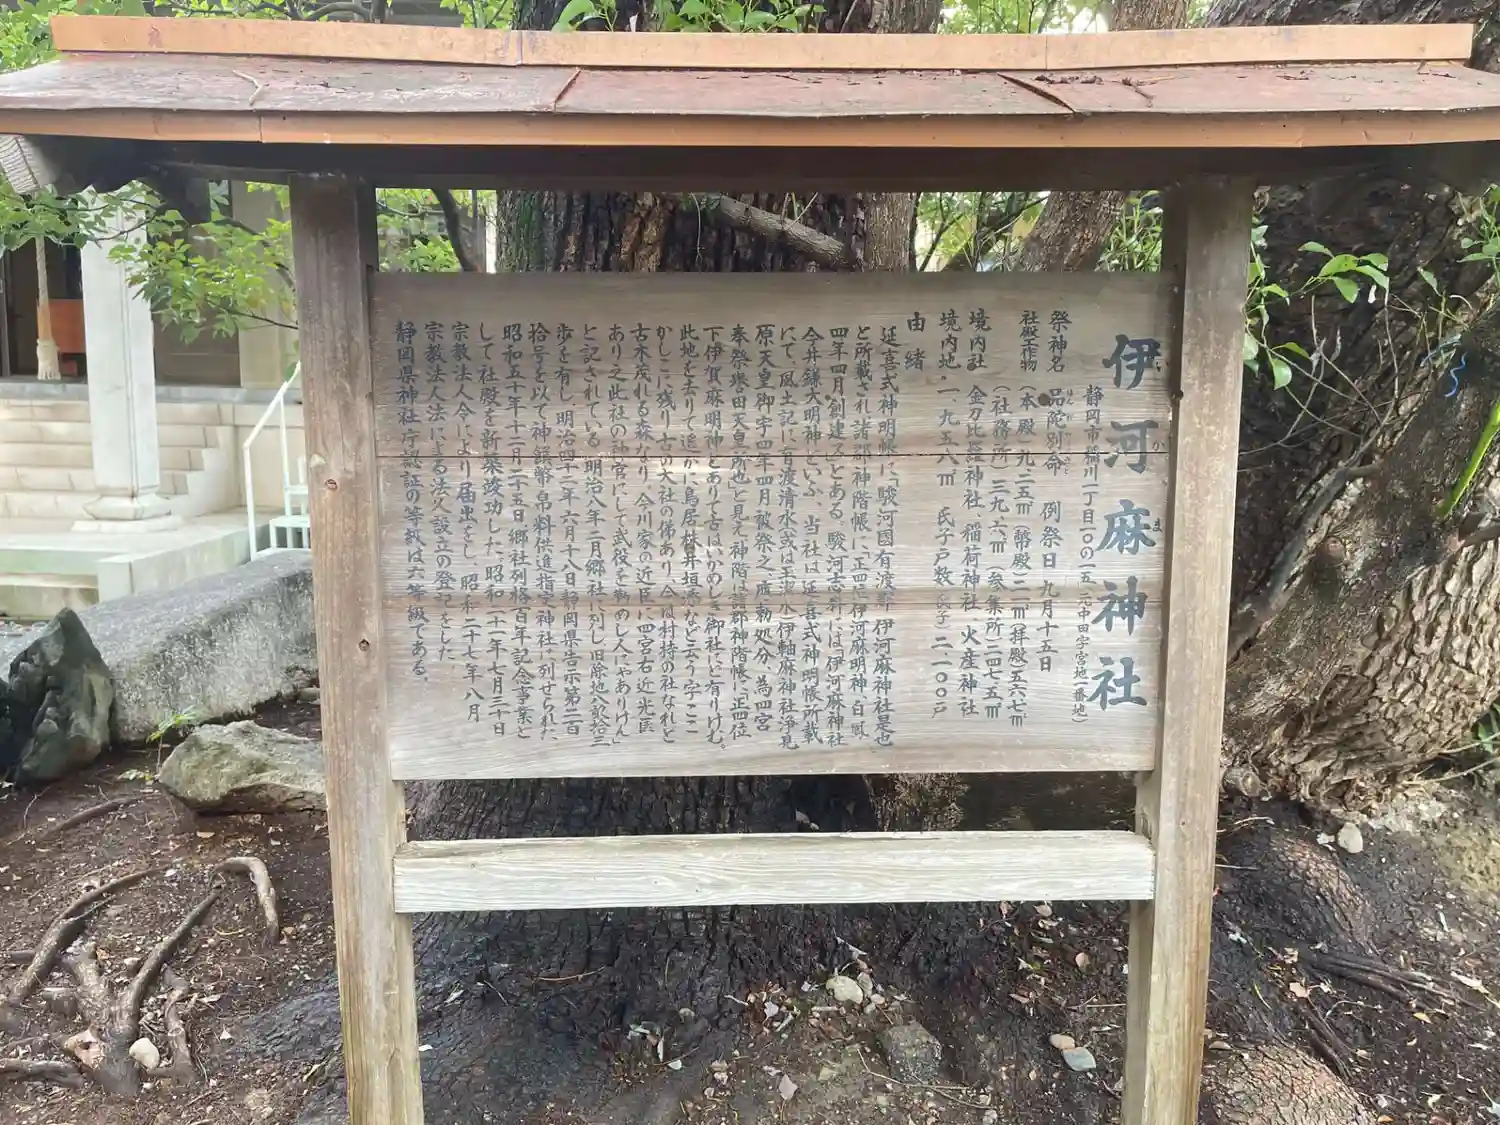 伊河麻神社
静岡市稲川一丁目一〇の一五(元中田字宮地一番地)
祭神名 品陀別命 例祭日 九月十五日
社殿工作物 (本殿)九、二五㎡(幣殿)一二㎡(拝殿)五六、七㎡
(社務所)三九、六㎡(参集所)二四七、五㎡
境内社 金刀比羅神社、稲荷神社、火産神社
境内地 一、九五八㎡ 氏子戸数 二一〇〇戸
由緒
延喜式神明帳に「駿河国有渡郡 伊河麻神社是也
と所載され諸郡神階帳に正四位伊河麻明神 白鳳
四年四月創建スとある。駿河志料には伊河麻神社
今井鎌大明神といふ、当社は延喜式神明帳所載
にて、風土記に有渡清水或は 水伊軸麻神社浄見
原天皇御宇四年四月被祭之 勅処分、為四宮
奉祭誉田天皇所也と見え神階は諸郡神階帳に正四位
下伊賀麻明神とありて古はいかめしき御社にど有りけむ。
此地を去りて遥かに鳥居 井垣添など云う字ここ
かしこに残り古の大社の俤あり、今は村持の社なれど
古木茂れる森なり、今川家の近臣に四宮右近光匡
あり之此社の神官にして武役を勤めし人にやありけん」
と記されている。明治八年二月郷社に列し旧除地八畝拾三
歩を有し、明治四十二年六月十八日静岡県告示第二百
拾号を以て神饌幣帛料供進指定神社に列せられた、
昭和五十年十二月二十五日郷社列格百年記念事業と
して社殿を新築竣功した。昭和二十一年七月三十日
宗教法人令により届出をし、昭和二十七年八月
宗教法人法による法人設立の登記をした
静岡県神社庁認証の等級は六等級である。